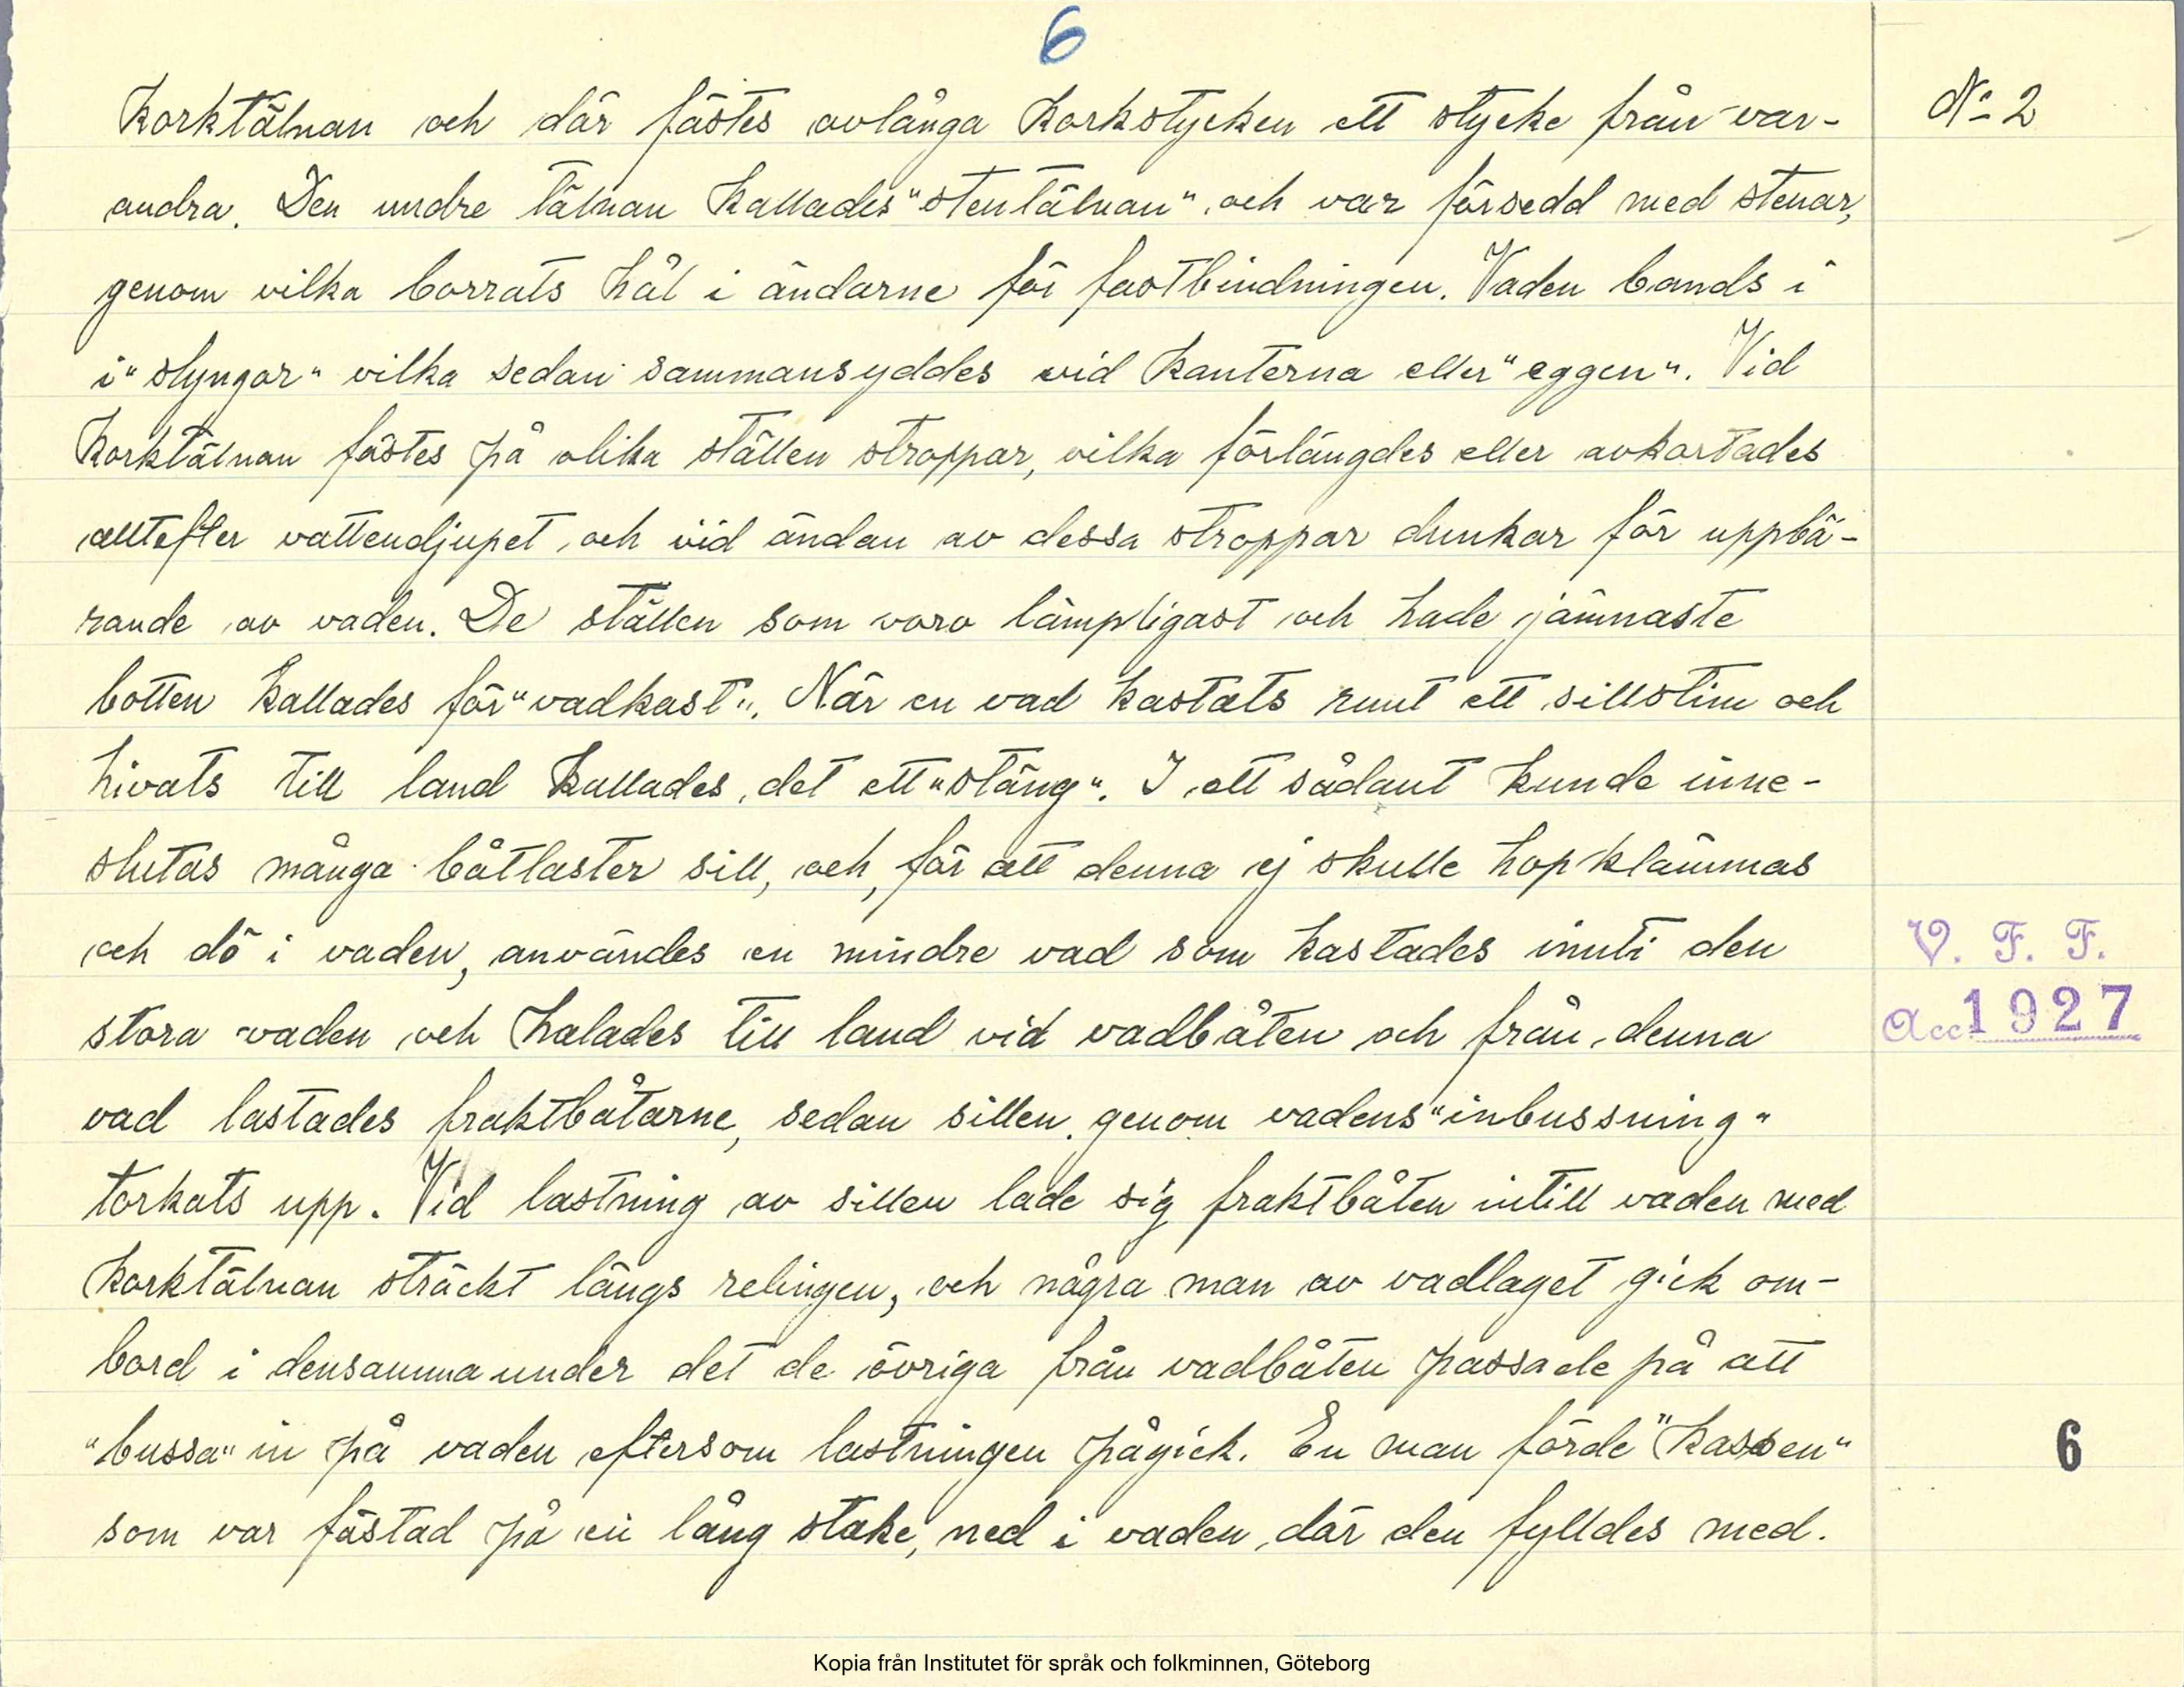 6
Korktälnan och där fästes avlånga korkstycken ett stycke från var-
N:o 2
andra. Den undre tälnan kallades "stentälnan" och var försedd med stenar,
genom vilka borrats hål i ändarne för fastbindningen. Vaden bands i
i "slyngor" vilka sedan sammansyddes vid kanterna eller "eggen". Vid
Korktälnan fästes på olika ställen stroppar, vilka förlängdes eller avkortades
alltefter vattendjupet och vid ändan av dessa stroppar dunkar för uppbä-
rande av vaden. De ställen som voro lämpligast och hade jämnaste
botten kallades för "vadkast". När en vad kastats runt ett sillstim och
hivats till land kallades det ett "stäng". I ett sådant kunde inne-
slutas många båtlaster sill, och, för att denna ej skulle hopklämmas
och dö i vaden, användes en mindre vad som kastades inuti den
V. F. F.
stora vaden och halades till land vid vadbåten och från denna
Acc. 1927
vad lastades fraktbåtarne, sedan sillen genom vadens "inbussning"
torkats upp. Vid lastning av sillen lade sig fraktbåten intill vaden med
korktälnan sträckt längs relingen, och några man av vadlaget gick om-
bord i densamma under det de övriga från vadbåten passade på att
"bussa" in på vaden eftersom lastningen pågick. En man förde "kassen"
6
som var fästad på en lång stake, ned i vaden, där den fylldes med.
Kopia från Institutet för språk och folkminnen, Göteborg